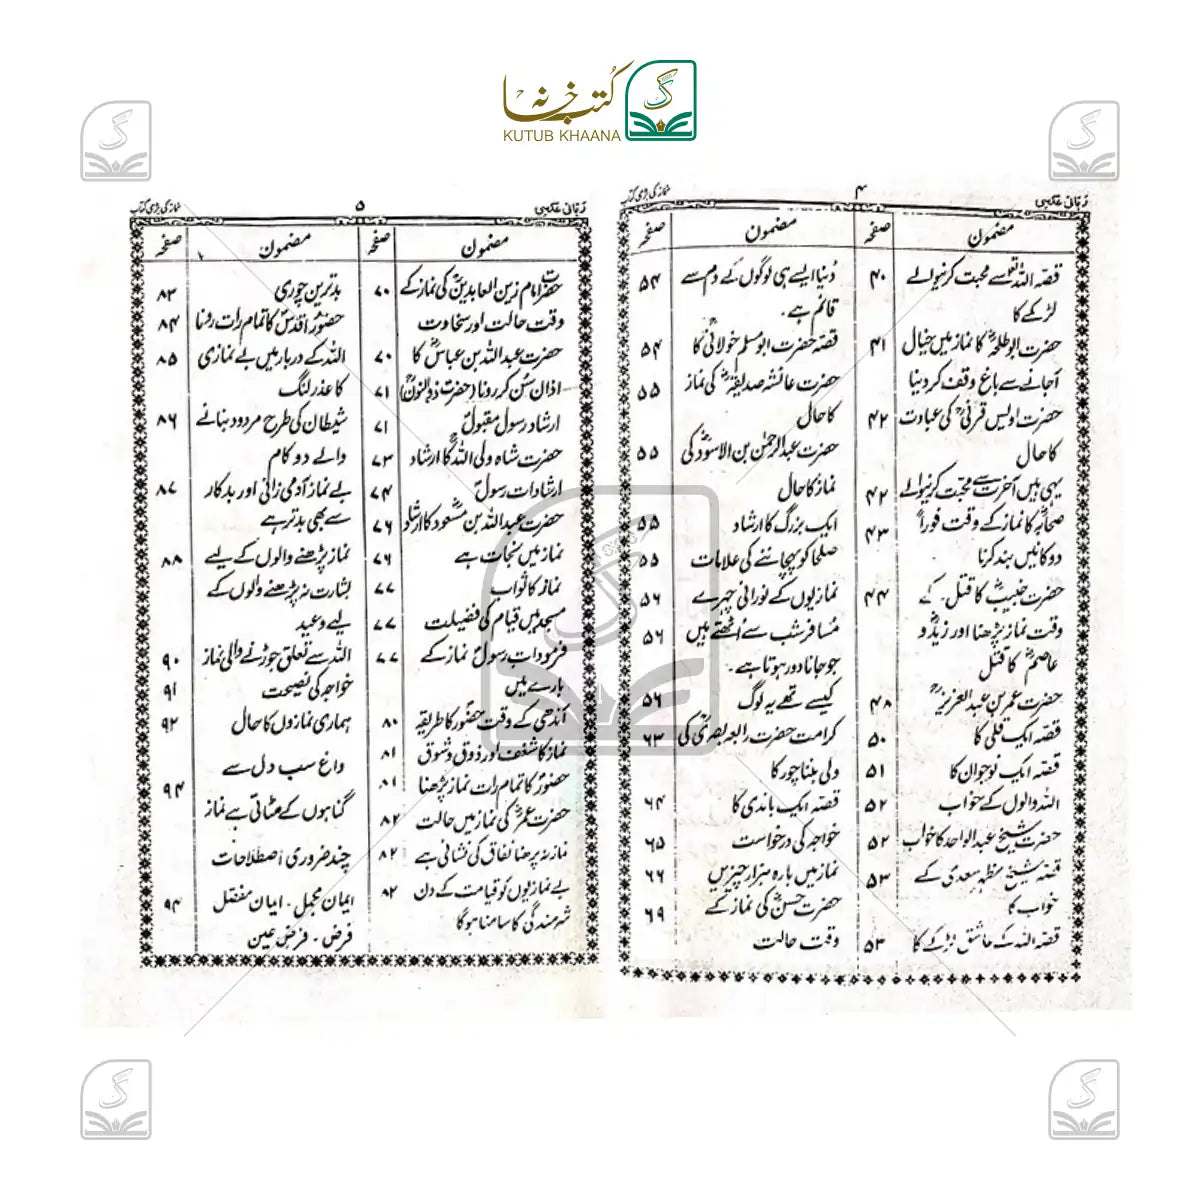 کتب خانہ
KUTUB KHAANA
نماز کی بڑی کتاب
۴
ربانی عکسی
مضمون
صفحہ
قصہ اللہ تعالیٰ سے محبت کرنیوالے
۴۰
لڑکے کا
حضرت ابو طلحہؓ کا نماز میں خیال
۴۱
آجانے سے باغ وقف کر دینا
حضرت اویس قرنیؒ کی عبادت
۴۲
کا حال
یہی ہیں آخرت سے محبت کرنیوالے
۴۲
صحابہؓ کا نماز کے وقت فوراً
۴۳
دوکانیں بند کرنا
حضرت خبیبؓ کا قتل کے
۴۴
وقت نماز پڑھنا اور زیدؓ و
عاصمؓ کا قتل
حضرت عمر بن عبدالعزیزؒ
۴۸
قصہ ایک قلی کا
۵۰
قصہ ایک نوجوان کا
۵۱
اللہ والوں کے خواب
۵۲
حضرت شیخ عبدالواحد کا خواب
۵۲
قصہ شیخ مظہر سعدی کے
۵۳
خواب کا
قصہ اللہ کے عاشق لڑکے کا
۵۳
مضمون
صفحہ
دُنیا ایسے ہی لوگوں کے دم سے
۵۴
قائم ہے۔
قصہ حضرت ابو مسلم خولانیؒ کا
۵۴
حضرت عائشہ صدیقہؓ کی نماز
۵۵
کا حال
حضرت عبدالرحمٰن بن الاسودؒ کی
۵۵
نماز کا حال
ایک بزرگ کا ارشاد
۵۵
صلحا کو پہچاننے کی علامات
۵۵
نمازیوں کے نورانی چہرے
۵۶
مسافر شب سے اُٹھتے ہیں
۵۶
جو جانا دور ہوتا ہے۔
کیسے تھے یہ لوگ
۵۶
کرامت حضرت رابعہ بصریؒ کی
۶۳
ولی بننا چور کا
قصہ ایک باندی کا
۶۴
خواجہ کی درخواست
۶۵
نماز میں بارہ ہزار چیزیں
۶۶
حضرت حسنؓ کی نماز کے
۶۹
وقت حالت
نماز کی بڑی کتاب
۵
ربانی عکسی
مضمون
صفحہ
حضرت امام زین العابدینؒ کی نماز کے
۷۰
وقت حالت اور سخاوت
حضرت عبداللہ بن عباسؓ کا
۷۰
اذان سُن کر رونا (حضرت ذوالنونؒ)
۷۱
ارشاد رسول مقبولؐ
۷۱
حضرت شاہ ولی اللہؒ کا ارشاد
۷۳
ارشادات رسولؐ
۷۴
حضرت عبداللہ بن مسعودؓ کا ارشاد
۷۶
نماز میں نجات ہے
۷۶
نماز کا ثواب
۷۷
مسجد میں قیام کی فضیلت
۷۷
فرمودات رسولؐ نماز کے
۷۷
بارے میں
آندھی کے وقت حضورؐ کا طریقہ
۸۰
نماز کا شغف اور ذوق و شوق
۸۱
حضورؐ کا تمام رات نماز پڑھنا
۸۱
حضرت عمرؓ کی نماز میں حالت
۸۲
نماز نہ پڑھنا نفاق کی نشانی ہے
۸۲
بے نمازیوں کو قیامت کے دن
۸۲
شرمندگی کا سامنا ہوگا
مضمون
صفحہ
بدترین چوری
۸۳
حضورِ اقدسؐ کا تمام رات رونا
۸۴
اللہ کے دربار میں بے نمازی
۸۵
کا عذر لنگ
شیطان کی طرح مردود بنانے
۸۶
والے دو کام
بے نماز آدمی زانی اور بدکار
۸۷
سے بھی بدتر ہے
نماز پڑھنے والوں کے لیے
۸۸
بشارت نہ پڑھنے والوں کے
لیے وعید
اللہ سے تعلق جوڑنے والی نماز
۹۰
خواجہ کی نصیحت
۹۱
ہماری نمازوں کا حال
۹۲
داغ سب دل سے
۹۴
گناہوں کے مٹاتی ہے نماز
چند ضروری اصطلاحات
ایمان مجمل۔ ایمان مفصل
۹۴
فرض۔ فرض عین